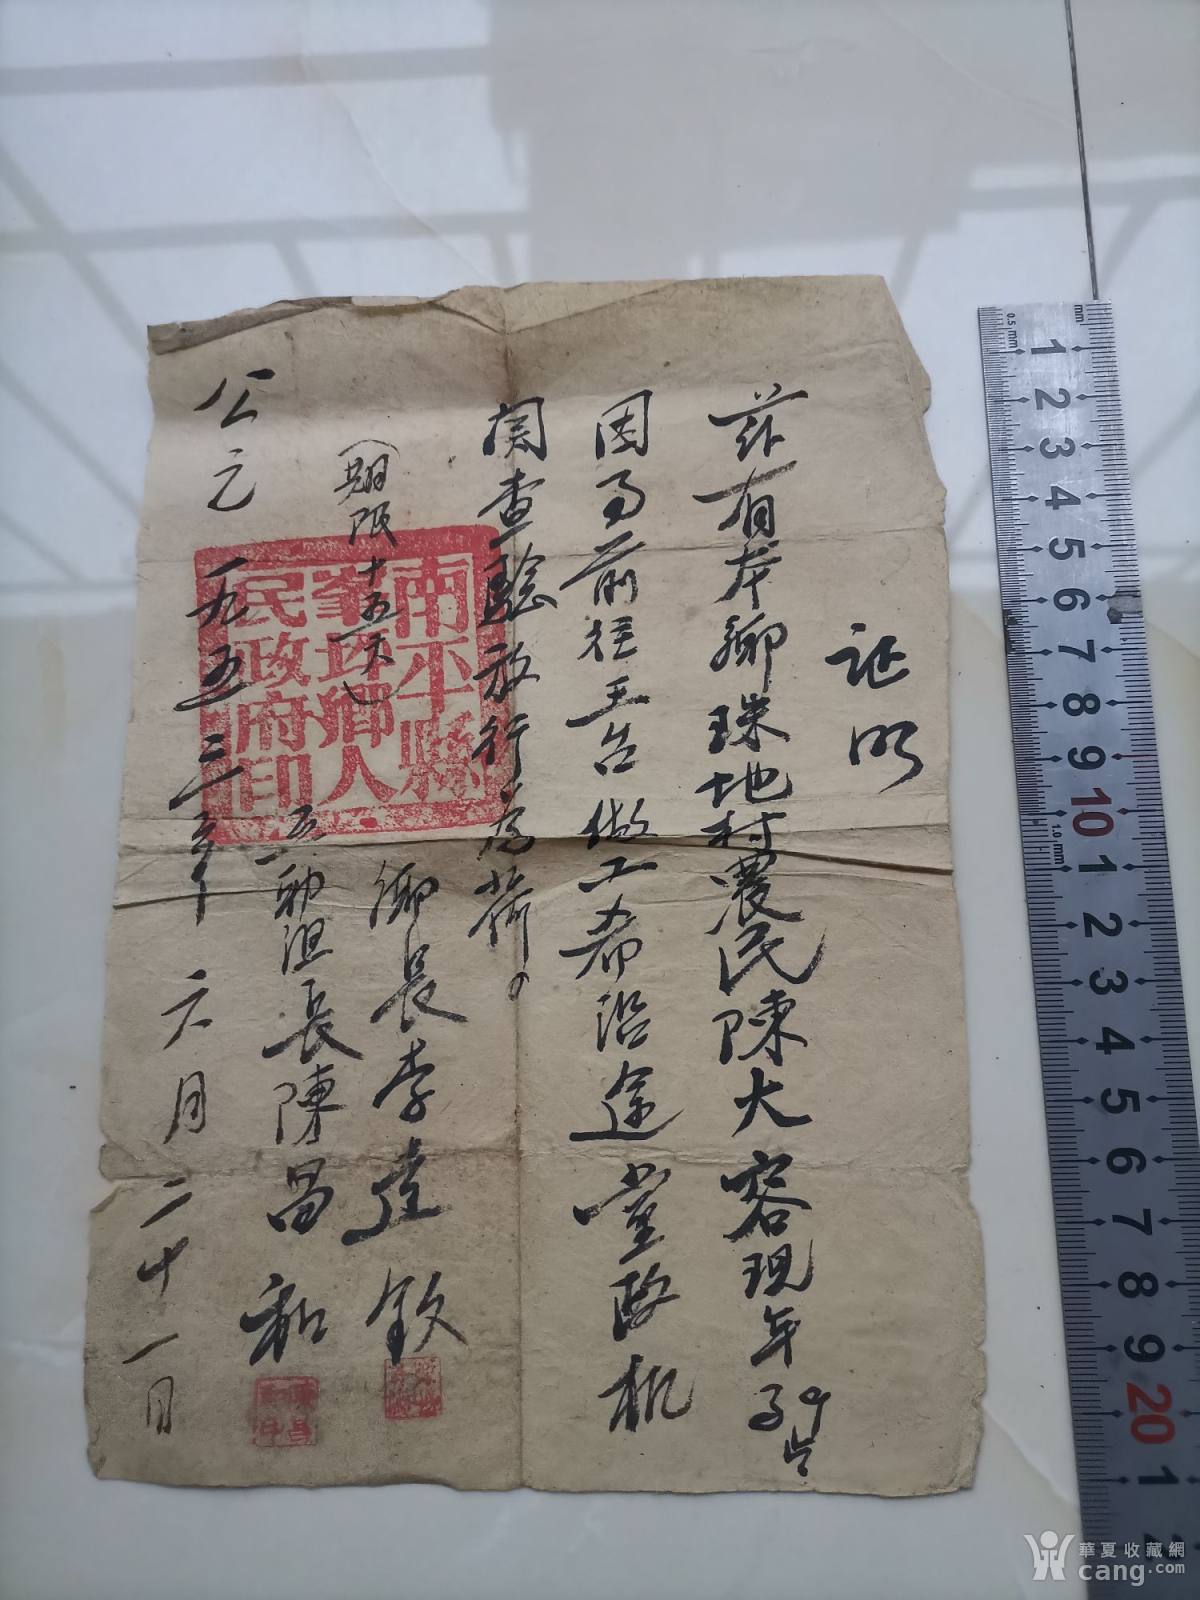 证明
兹有本鄉珠地村農民陳大容现年39岁
因事前往王台做工希沿途党政机
関查驗放行为荷。
（期限十五天）
鄉長李达钦
互助组長陳昌和
公元一九五三年六月二十一日
南平縣
峯珠鄉人
民政府印
1 2 3 4 5 6 7 8 9 10 1 2 3 4 5 6 7 8 9 20 1
mm
0.5 mm
1.0 mm
華夏收藏網
cang.com